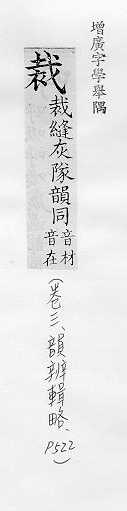 增廣字學舉隅
裁 裁縫灰隊韻同 音材
音在
(卷三、韻辨輯略、P522)